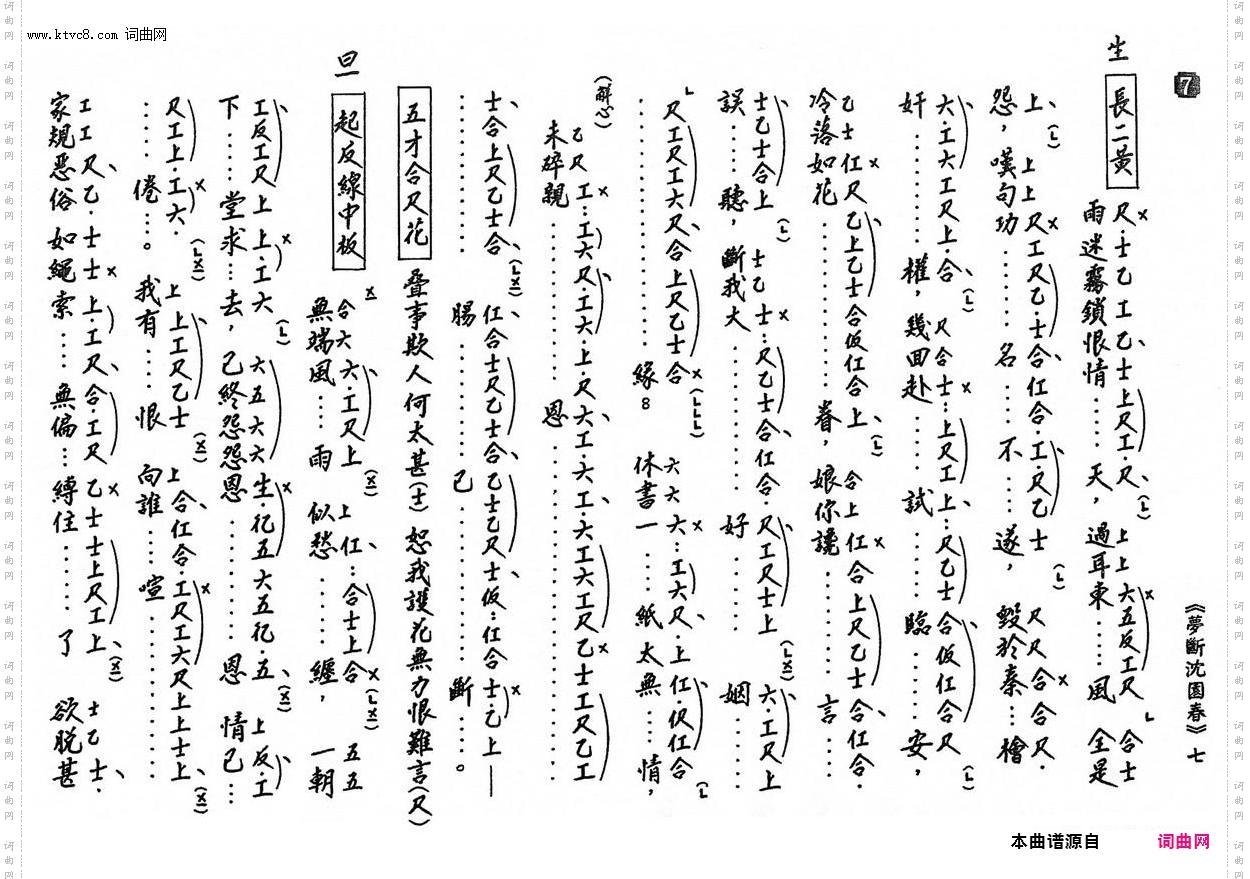 www.ktvc8.com 词曲网
7
《夢斷沈園春》七
生
長二黃
尺·士乙工乙士上尺工·尺(乚)上上六五反工尺乚合士
雨迷霧鎖恨情……天，過耳東……風 全是
上(乚)上上尺工尺乙·士合仜合·工·尺乙士(乚)尺尺合合尺·
怨，嘆句功……名……不……遂，毀於秦…檜
六·工六工尺上合(乚)尺合士…上尺工上…尺乙士合仮仜合尺(乚)
奸……權，幾回赴……試……臨……安，
乙士仜尺乙上乙士合仮仜合上(乚)合上仜合上尺乙士合仜合·
冷落如花……眷，娘你讒……言…
士乙士合上(乚)士乙士…尺乙士合仜合·尺工尺士上(乚x)六·工尺上
誤……聽，斷我大……好……姻……
乚尺工尺工六尺合上尺乙士合(乚乚乚)六六六…工六尺·上仜·伬仜合(乚
……緣。休書一……紙太無……情，
(解心)
乙尺工…工六尺·工六·上·尺六工·六工·六工六工尺乙士工尺乙工
未碎親……恩……
士合上尺乙士合(乚x)仜合士尺乙士合乙士乙尺士仮…仜合士·乙上—
……腸……己……斷……。
五才合尺花
疊事欺人何太甚(士)恕我護花無力恨難言(尺)
旦
起反線中板
x合六六工尺上(x)上仜…合士上合(乚x)五五
無端風……雨 似愁……纏，一朝
工反工尺上上·工六(乚)六五六六生·仡五六五仡·五(x)上反·工
下……堂求…去，己終怨怨恩……恩 情己…
尺工上·工六·(乚x)上上工尺乙士(x)上合仜合·工尺工六尺上上士上(x)
……倦…。我有…恨 向誰…喧……
工工尺乙·士士上·工尺合·工尺乙士士上尺工上(x)士乙士·
家規惡俗 如繩索……無偏…縛住……了 欲脫甚
本曲谱源自 词曲网